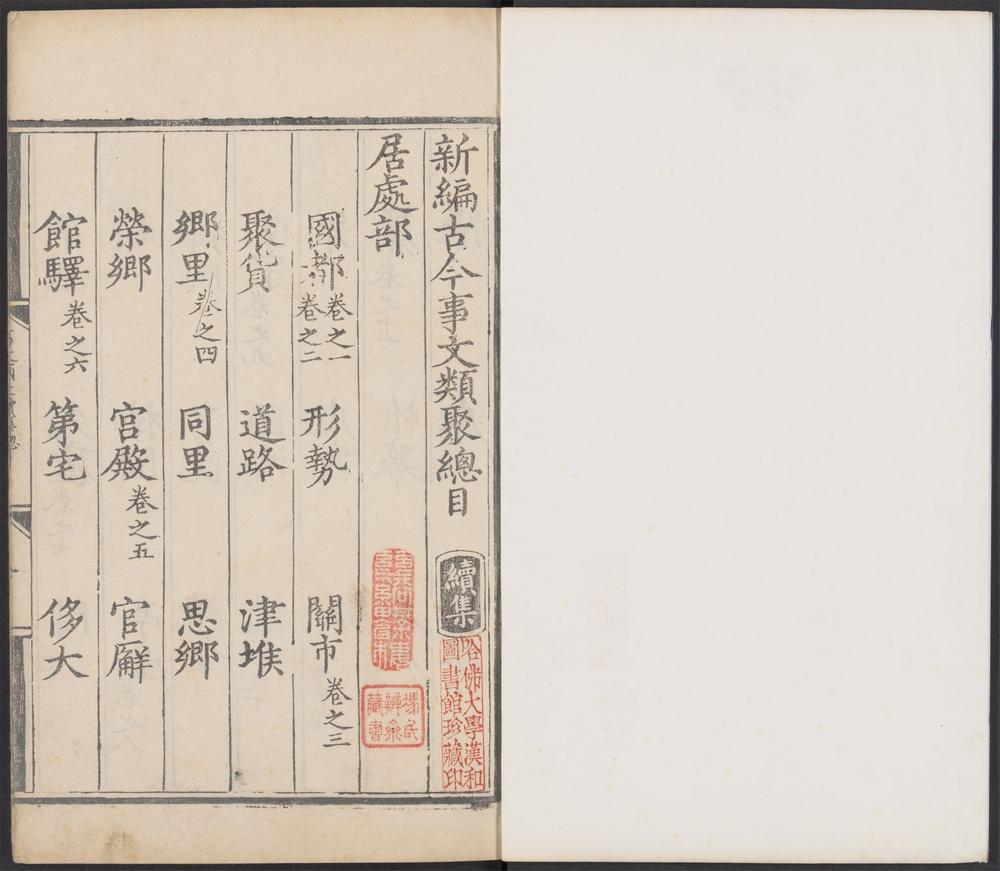 新編古今事文類聚總目 續集
居處部
國都 卷之一 卷之二 形勢 關市 卷之三
聚貨 道路 津堠
鄉里 卷之四 同里 思鄉
榮鄉 宮殿 卷之五 官廨
館驛 卷之六 第宅 侈大
哈佛大學漢和
圖書館珍藏印
馮氏
辨齋
藏書